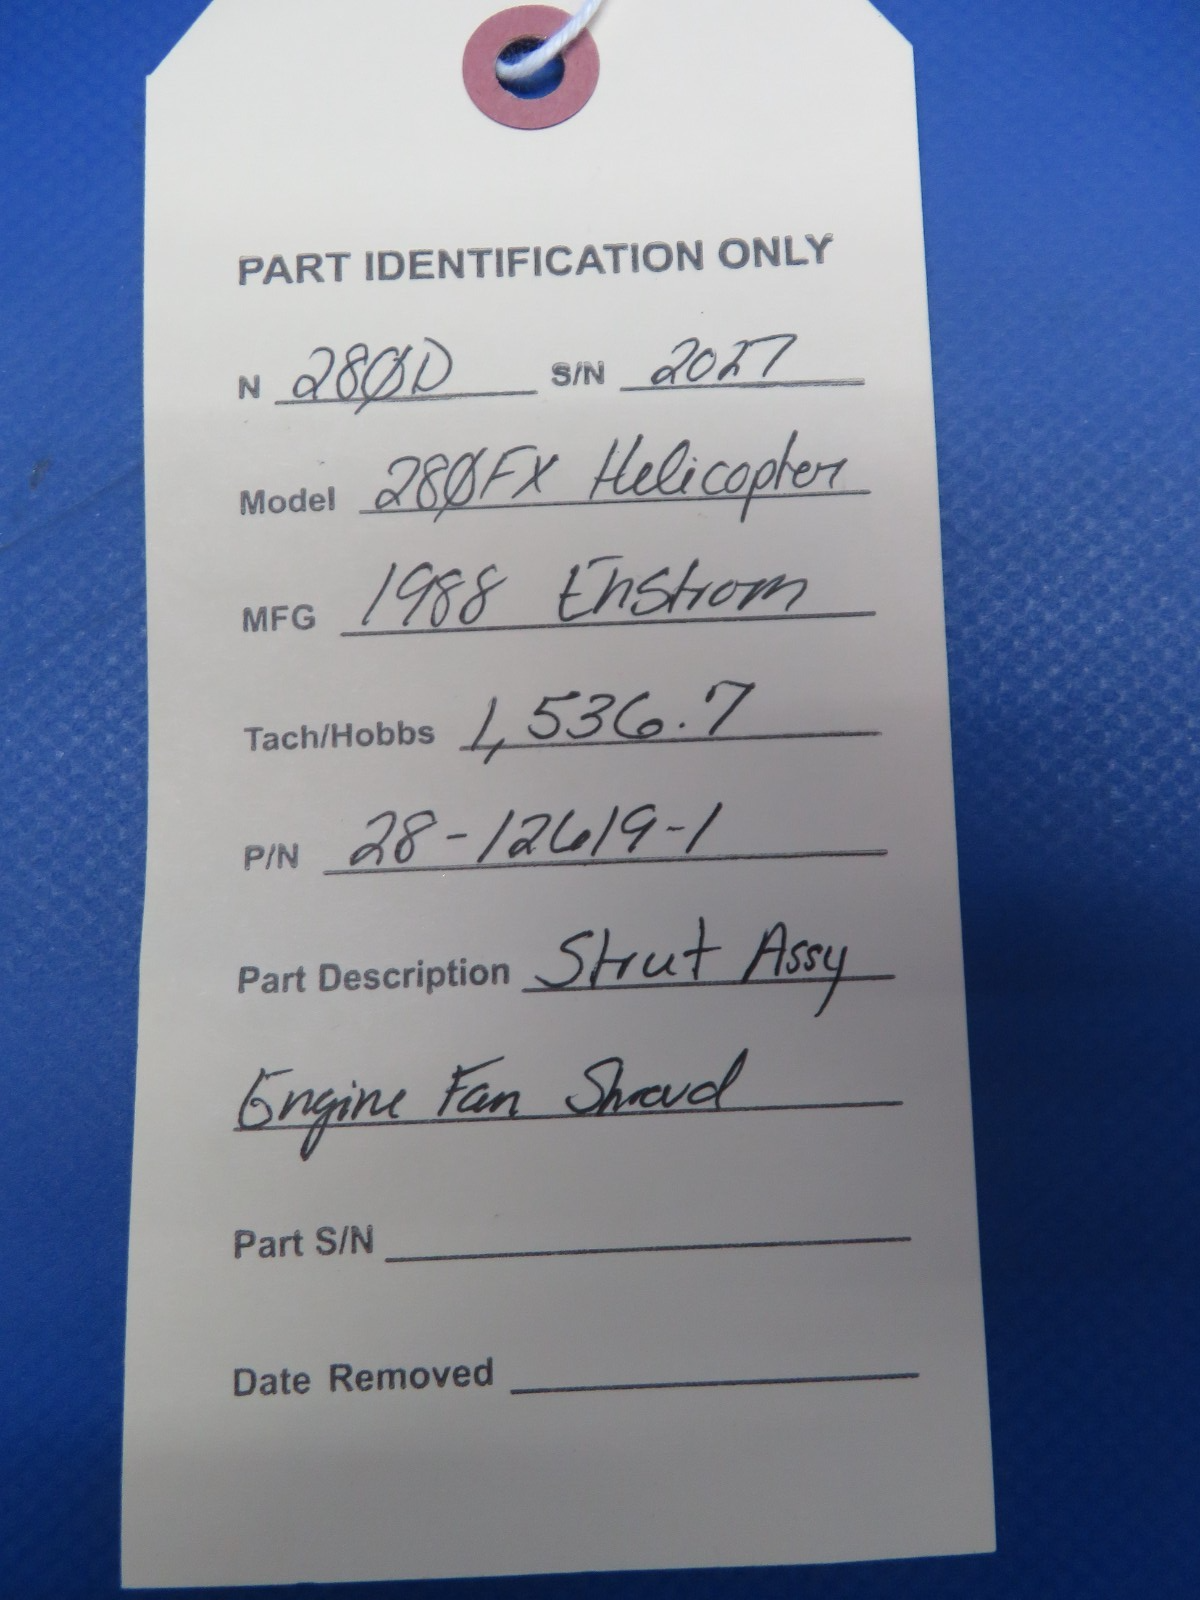 PART IDENTIFICATION ONLY
N 280D S/N 2027
Model 280FX Helicopter
MFG 1988 Enstrom
Tach/Hobbs 1,536.7
P/N 28-12619-1
Part Description Strut Assy
Engine Fan Shroud
Part S/N
Date Removed